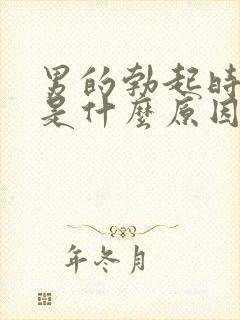 男的勃起时
是什麼原因
年冬月